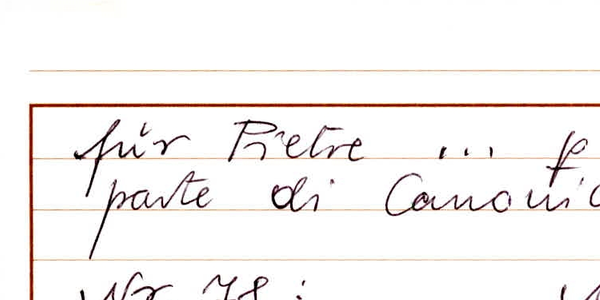 für Pietre ... f
parte di Canonic
Nr 78 :